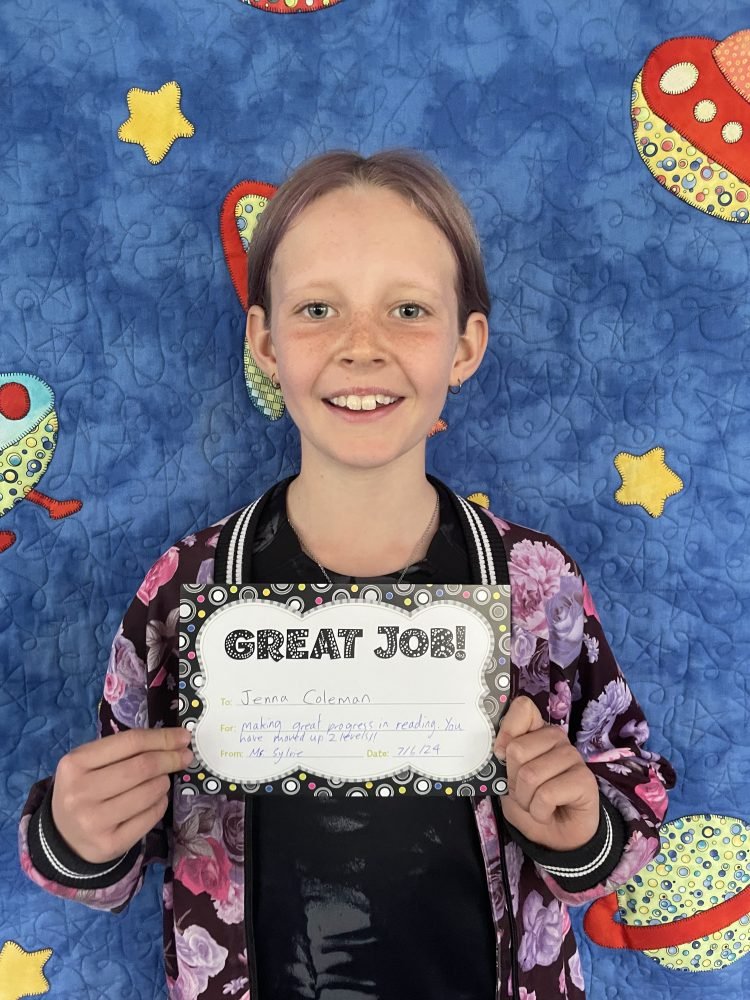 GREAT JOB!
To: Jenna Coleman
For: making great progress in reading. You
have moved up 2 levels!!
From: Ms Sylvie Date: 7/6/24